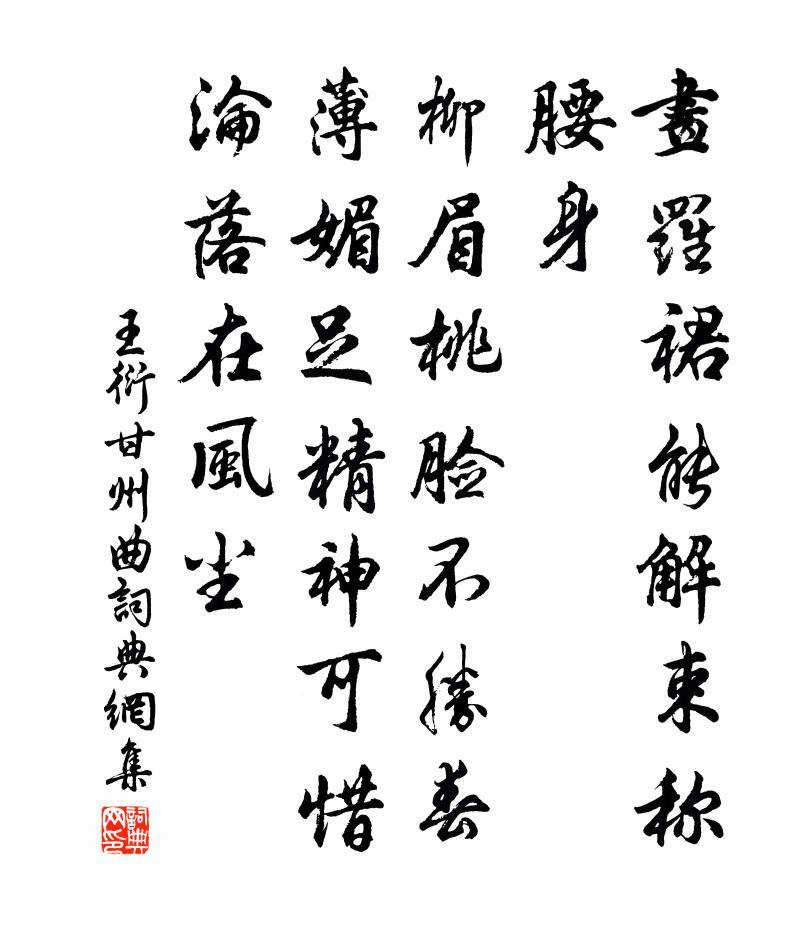 畫羅裙能解束称
腰身
柳眉桃脸不勝春
薄媚足精神可惜
淪落在風尘
王衍甘州曲詞典網集
詞典网印